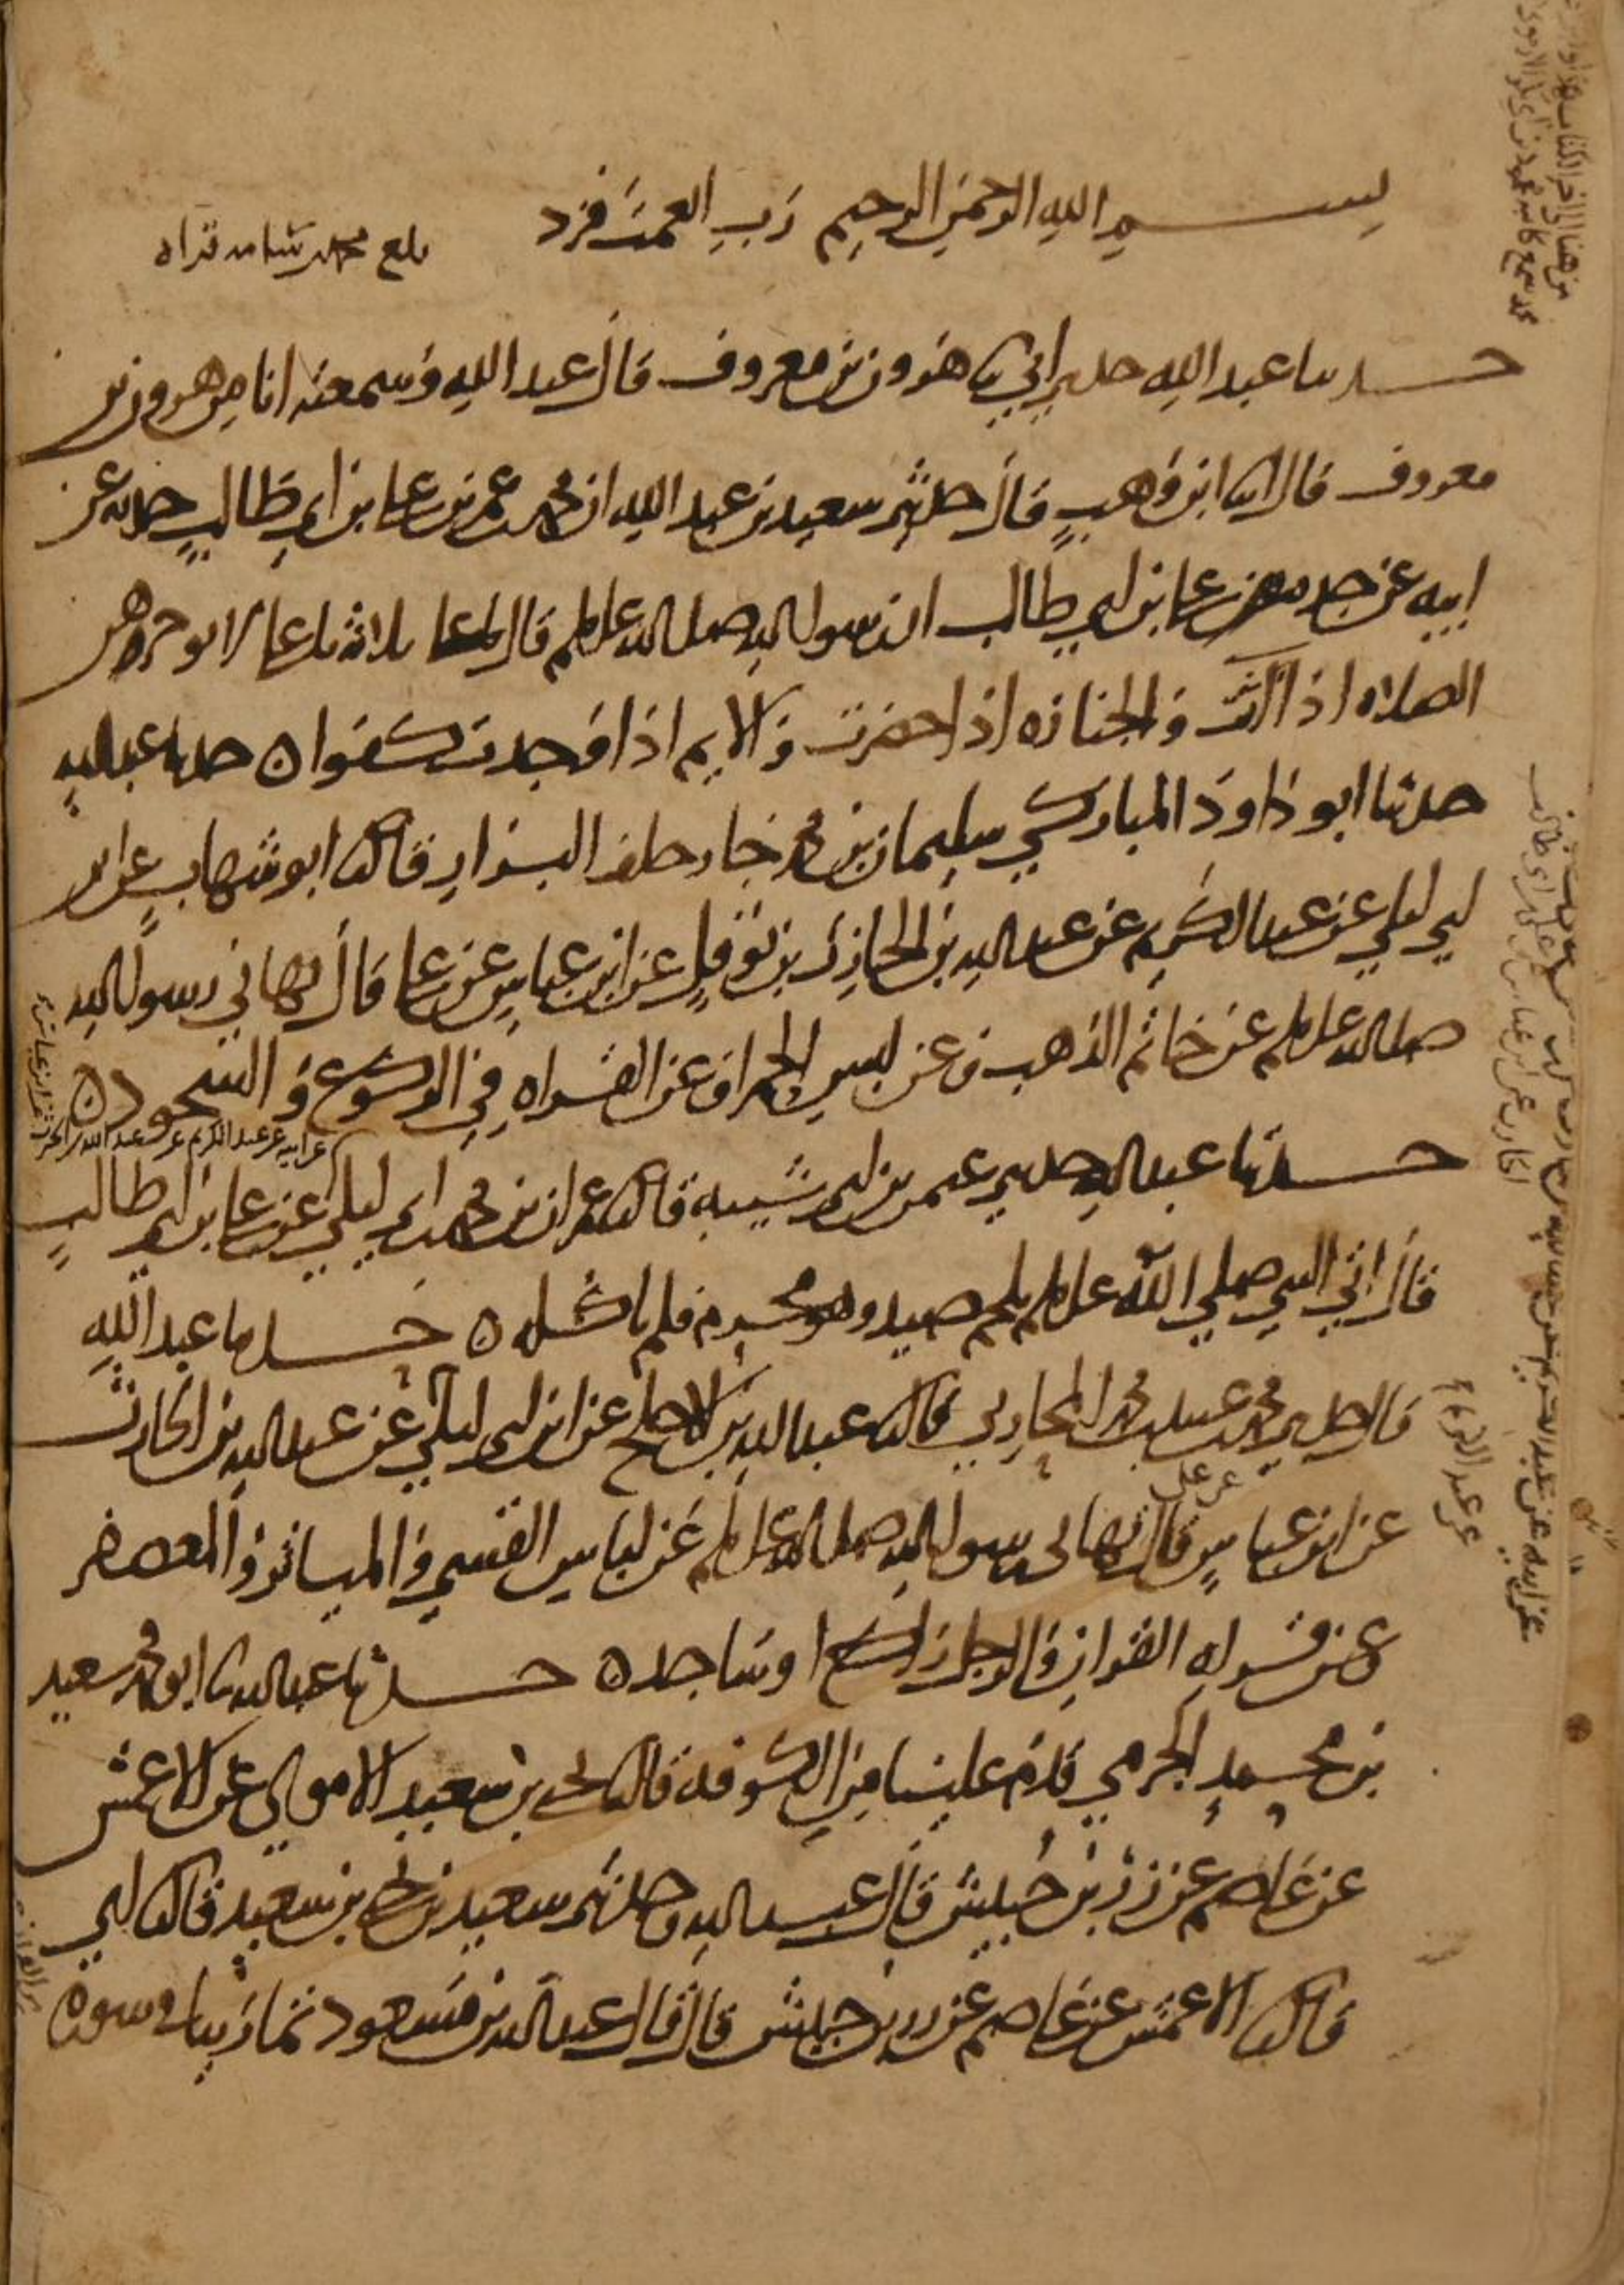 بسم الله الرحمن الرحيم رب انعمت فزد
بلغ محمد قراه
حدثنا عبد الله حدثني ابي ثنا هرون بن معروف قال عبد الله وسمعته انا من هرون بن
معروف قال انبا ابن وهب قال حدثني سعيد بن عبد الله ان محمد بن عمر بن علي بن ابي طالب حدثه عن
ابيه عن جده علي بن ابي طالب ان رسول الله صلى الله عليه وسلم قال ثلاثة يا علي لا توخرهن
الصلاه اذا اتت والجنازه اذا حضرت والايم اذا وجدت كفوا ه حدثنا عبد الله
حدثنا ابو داود المباركي سليمان بن محمد جار خلف البزار قال ثنا ابو شهاب عن ابن
ابي ليلي عن عبد الكريم عن عبد الله بن الحارث بن نوفل عن ابن عباس عن علي قال نهاني رسول الله
صلى الله عليه وسلم عن خاتم الذهب وعن لبس الحمرا وعن القراه في الركوع والسجود ه
عن ابيه عن عبد الكريم عن عبد الله بن الحرث عن ابن عباس
حدثنا عبد الله حدثني عثمن بن ابي شيبه قال ثنا عمران بن محمد بن ابي ليلي عن علي بن ابي طالب
قال اتي النبي صلي الله عليه وسلم بلحم صيد وهو محرم فلم ياكله ه حدثنا عبد الله
قال حدثني محمد بن عبيد بن محمد المحاربي قال ثنا عبد الله بن الاجلح عن ابن ابي ليلي عن عبد الله بن الحارث
عن عبد الكريم
عن ابن عباس عن علي قال نهاني رسول الله صلى الله عليه وسلم عن لباس القسي والمياثر والمعصفر
وعن قراه القران والرجل راكع او ساجد ه حدثنا عبد الله ثنا ابو محمد سعيد
بن محمد الجرمي قدم علينا من الكوفه قال ثنا يحيى بن سعيد الاموي عن الاعمش
عن عاصم عن زر بن حبيش قال عبد الله وحدثني سعيد بن يحيى بن سعيد قال ثنا ابي
قال ثنا الاعمش عن عاصم عن زر بن حبيش قال قال عبد الله بن مسعود تمارينا في سوره